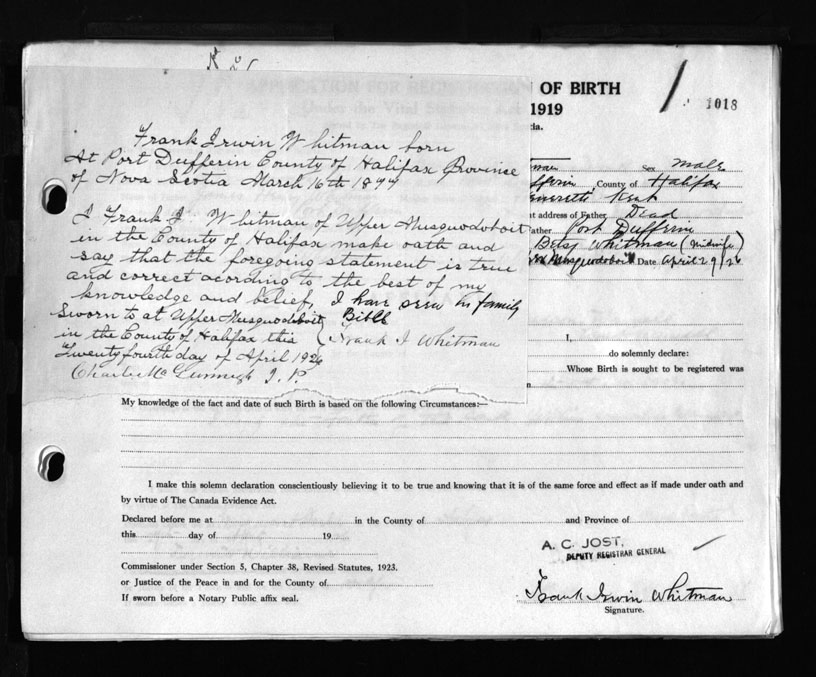 OF BIRTH
1919
1018
Frank Irwin Whitman born
At Port Dufferin County of Halifax Province
of Nova Scotia March 16th
I Frank I Whitman of Upper Musquodoboit
in the County of Halifax make oath and
say that the foregoing statement is true
and correct acording to the best of my
knowledge and belief, I have seen in family
Bible
Sworn to at Upper Musquodoboit
in the County of Halifax this
Frank I Whitman
Twenty fourth day of April 1926
J. P.
Sex Male
County of Halifax
Kent
address of Father Dead
Port Dufferin
Betsy Whitman (Midwife)
Musquodoboit Date April 29/26
I,
do solemnly declare:
Whose Birth is sought to be registered was
My knowledge of the fact and date of such Birth is based on the following Circumstances:—
I make this solemn declaration conscientiously believing it to be true and knowing that it is of the same force and effect as if made under oath and
by virtue of The Canada Evidence Act.
Declared before me at in the County of and Province of
this day of 19
A. C. JOST,
DEPUTY REGISTRAR GENERAL
Commissioner under Section 5, Chapter 38, Revised Statutes, 1923.
or Justice of the Peace in and for the County of
If sworn before a Notary Public affix seal.
Frank Irwin Whitman
Signature.